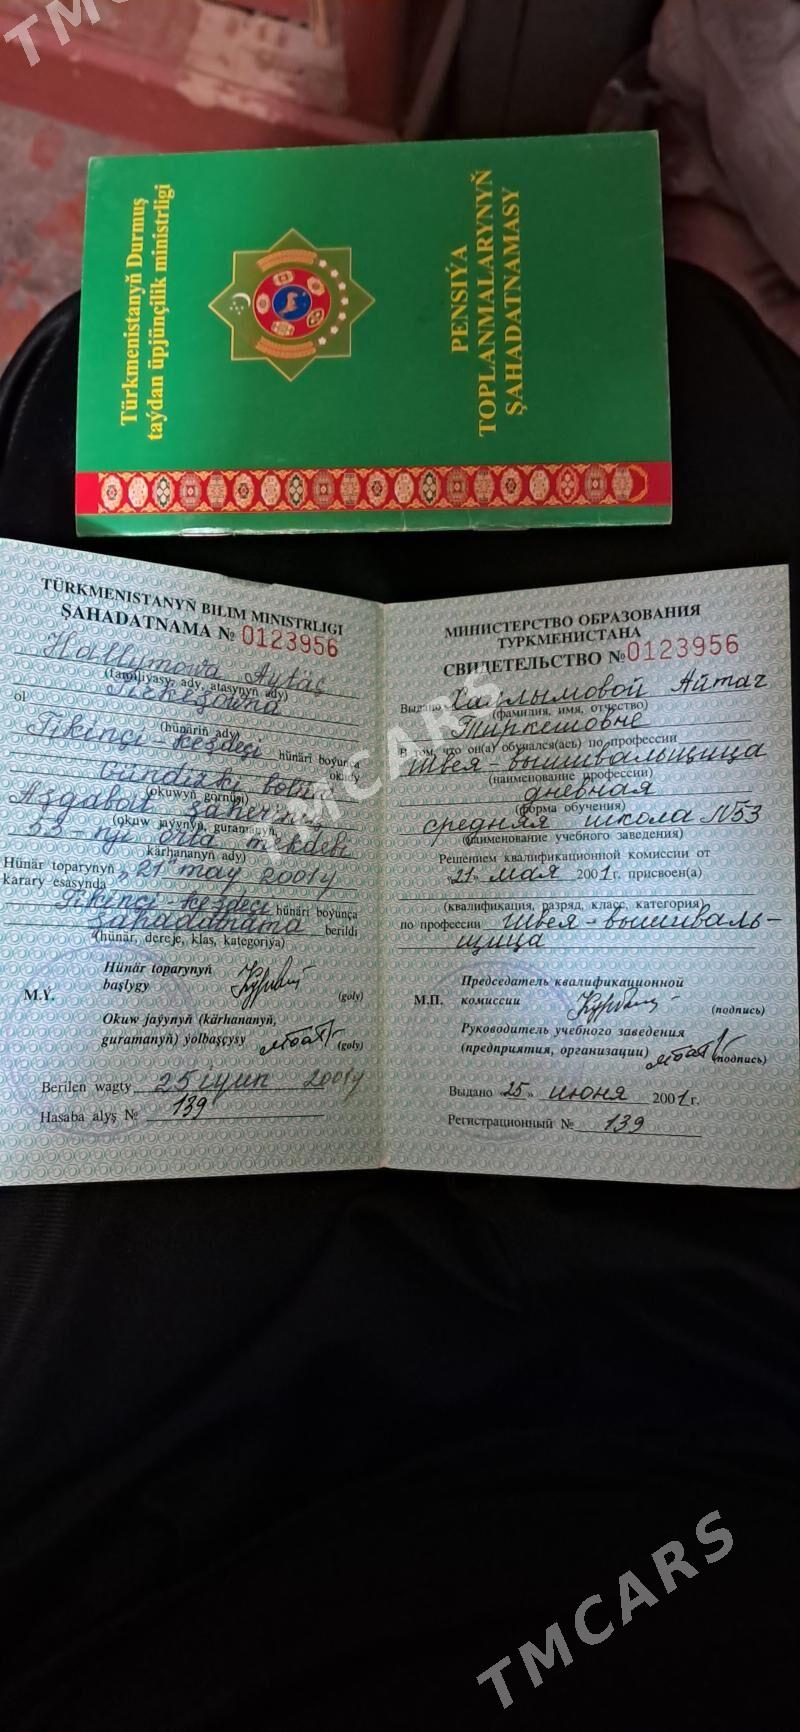 TMCARS
Türkmenistanyň Durmuş
taýdan üpjünçilik ministrligi
PENSIÝA
TOPLANMALARYNYŇ
ŞAHADATNAMASY
TÜRKMENISTANYŇ BILIM MINISTRLIGI
ŞAHADATNAMA № 0123956
Hallymowa Aýtäç
(familiýasy, ady, atasynyň ady)
ol Tirkeşowna
(hünäriň ady)
Tikinçi-keşdeçi hünäri boýunça
okady
Gündizki bölü
(okuwyň görnüşi)
Aşgabat şäheriniň
(okuw jaýynyň, guramanyň,
53-nji orta mekdebi
kärhananyň ady)
Hünär toparynyň „21 maý 2001ý
karary esasynda
Tikinçi-keşdeçi hünäri boýunça
şahadatnama berildi
(hünär, dereje, klas, kategoriýa)
Hünär toparynyň
başlygy
(goly)
M.Ý.
Okuw jaýynyň (kärhananyň,
guramanyň) ýolbaşçysy
(goly)
Berilen wagty 25 iýun 2001ý
Hasaba alyş № 139
МИНИСТЕРСТВО ОБРАЗОВАНИЯ
ТУРКМЕНИСТАНА
СВИДЕТЕЛЬСТВО № 0123956
Выдано Халлымовой Айтач
(фамилия, имя, отчество)
Тиркешовне
В том, что он(а) обучался(ась) по профессии
Швея-вышивальщица
(наименование профессии)
дневная
(форма обучения)
средняя школа N53
(наименование учебного заведения)
Решением квалификационной комиссии от
«21» мая 2001 г. присвоен(а)
(квалификация, разряд, класс, категория)
по профессии Швея-вышиваль-
щица
Председатель квалификационной
М.П. комиссии
(подпись)
Руководитель учебного заведения
(предприятия, организации)
(подпись)
Выдано «25» июня 2001 г.
Регистрационный № 139
TMCARS
TMCARS